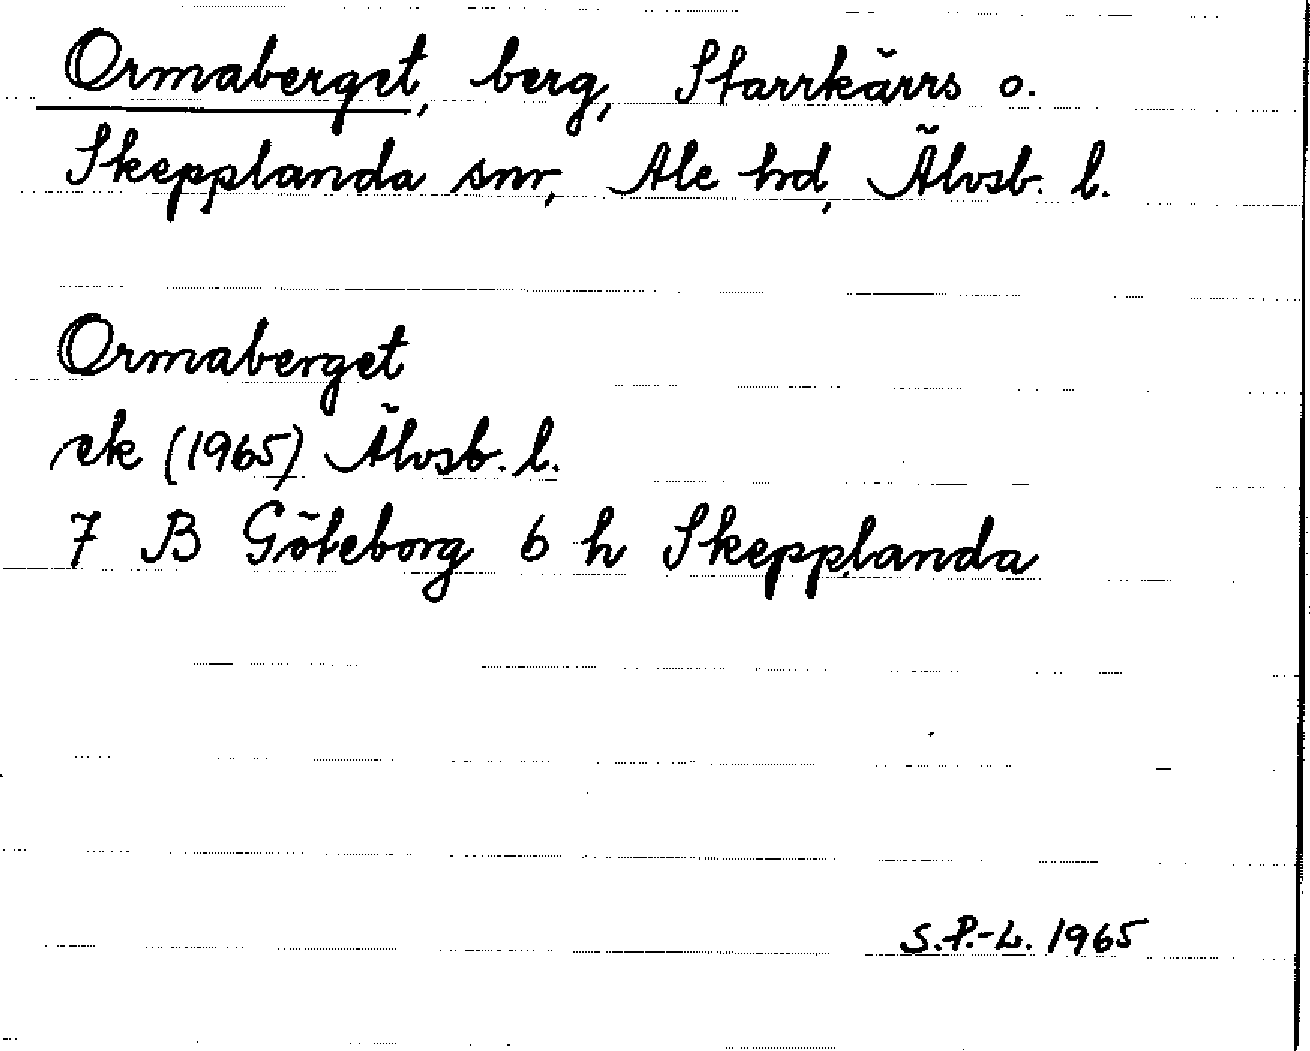 Ormaberget, berg, Starrkärrs o.
Skepplanda snr, Ale hd, Älvsb. l.
Ormaberget
ek (1965) Älvsb. l.
7 B Göteborg 6 h Skepplanda
S.P.-L. 1965